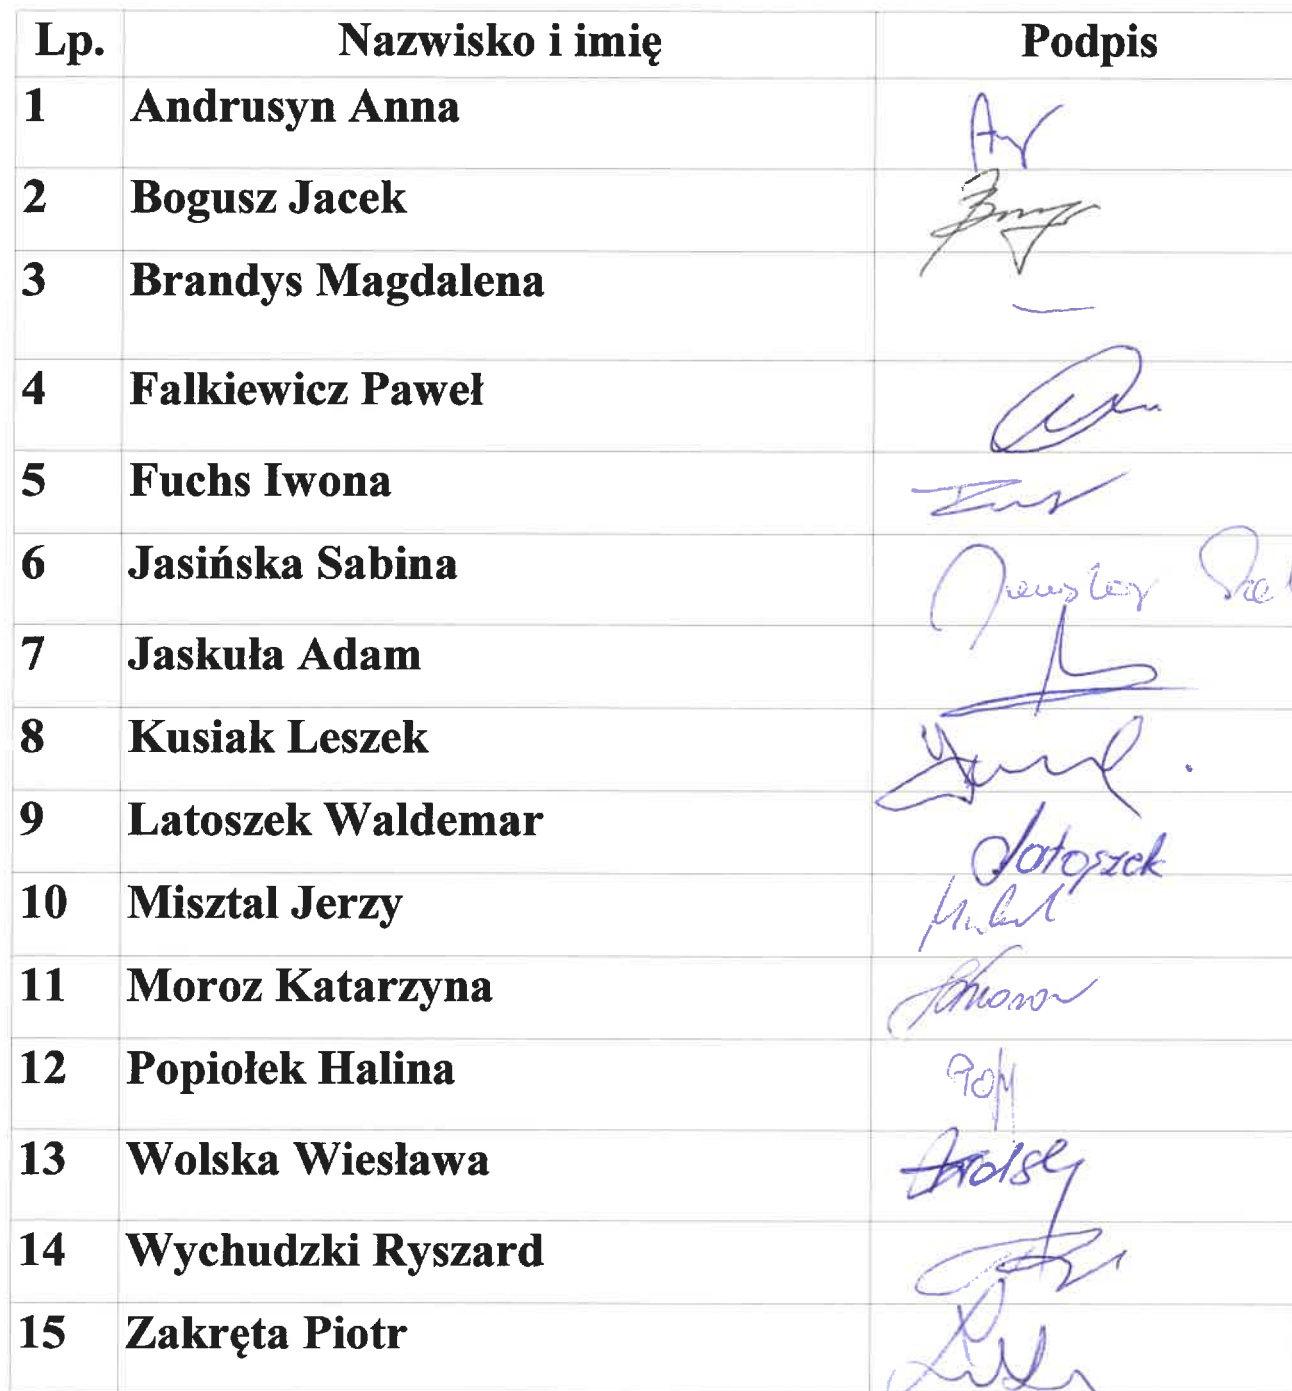 Lp. Nazwisko i imię Podpis
1 Andrusyn Anna
2 Bogusz Jacek
3 Brandys Magdalena —
4 Falkiewicz Paweł
5 Fuchs Iwona
6 Jasińska Sabina
7 Jaskuła Adam
8 Kusiak Leszek
9 Latoszek Waldemar Latoszek
10 Misztal Jerzy
11 Moroz Katarzyna
12 Popiołek Halina
13 Wolska Wiesława
14 Wychudzki Ryszard
15 Zakręta Piotr